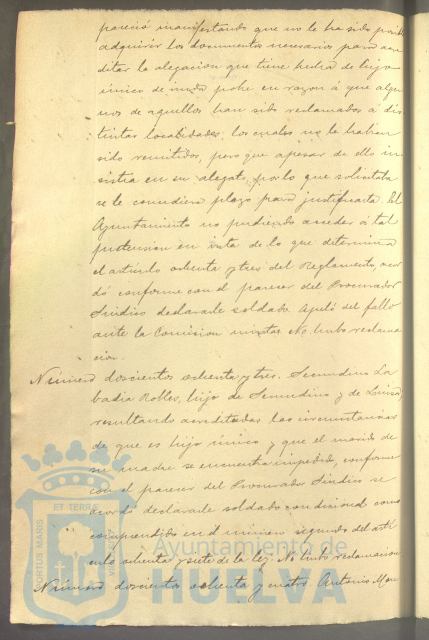 pareció manifestando que no le ha sido posible
adquirir los documentos necesarios para acre
ditar la alegación que tiene hecha de hijo
único de viuda pobre en razón á que algu
nos de aquellos han sido reclamados a dis
tintas localidades, los cuales no le habian
sido remitidos, pero que apesar de ello in
sistia en su alegato, por lo que solicitaba
se le concediera plazo para justificarla. El
Ayuntamiento no pudiendo acceder á tal
pretension en vista de lo que determina
el artículo ochenta y tres del Reglamento, acor
dó conforme con el parecer del Procurador
Síndico declararle soldado. Apeló del fallo
ante la Comision mixta. No hubo reclama
cion.
Número doscientos ochenta y tres. Secundino La
badia Robles, hijo de Secundino y de Luisa,
resultando acreditadas las circunstancias
de que es hijo único y que el marido de
su madre se encuentra impedido, conforme
con el parecer del Procurador Síndico se
acordó declararle soldado condicional como
comprendido en el número segundo del artí
culo ochenta y siete de la ley. No hubo reclamacion
Número doscientos ochenta y cuatro. Antonio
PORTUS MARIS
ET TERRE
Ayuntamiento de
HUELVA